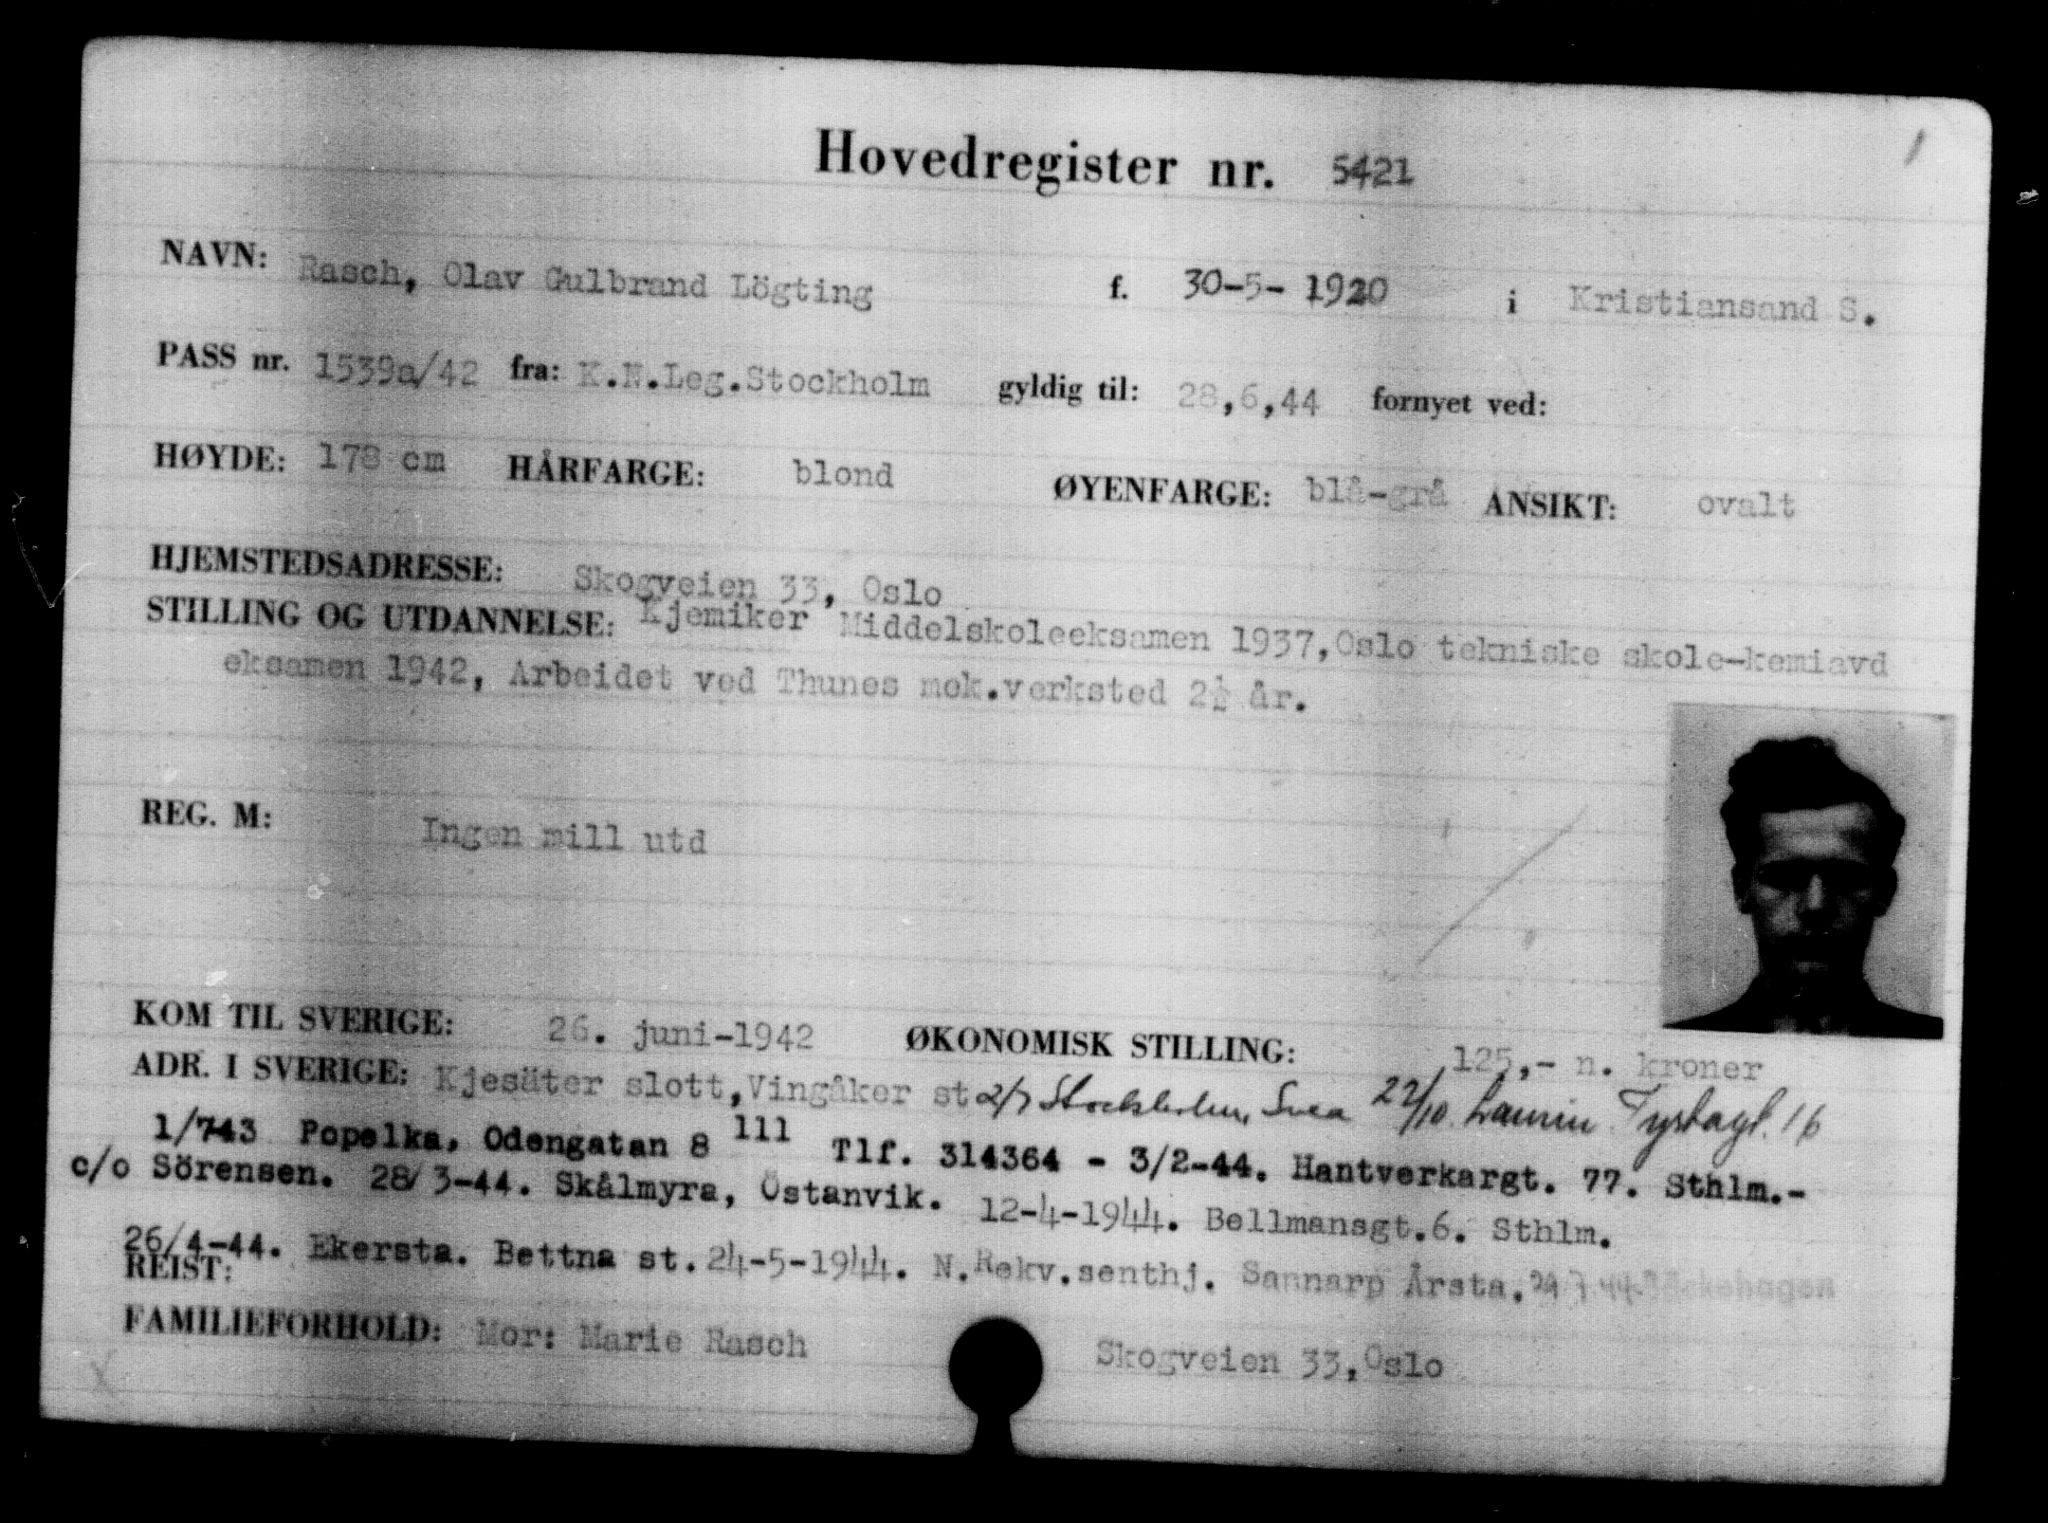 Hovedregister nr. 5421
NAVN: Rasch, Olav Gulbrand Lögting f. 30-5-1920 i Kristiansand S.
PASS nr. 1539a/42 fra: K.N.Leg.Stockholm gyldig til: 28,6,44 fornyet ved:
HØYDE: 178 cm HÅRFARGE: blond ØYENFARGE: blå-grå ANSIKT: ovalt
HJEMSTEDSADRESSE: Skogveien 33, Oslo
STILLING OG UTDANNELSE: Kjemiker Middelskoleeksamen 1937,Oslo tekniske skole-kemiavd
eksamen 1942, Arbeidet ved Thunes mek.verksted 2½ år.
REG. M: Ingen mill utd
KOM TIL SVERIGE: 26. juni-1942 ØKONOMISK STILLING: 125,- n. kroner
ADR. I SVERIGE: Kjesäter slott,Vingåker st 2/7 Stockholm, Svea 22/10 Laurin Tystagt. 16
1/743 Popelka, Odengatan 8 111 Tlf. 314364 - 3/2-44. Hantverkargt. 77. Sthlm.-
c/o Sörensen. 28/3-44. Skålmyra, Östanvik. 12-4-1944. Bellmansgt.6. Sthlm.
26/4-44. Ekersta. Bettna st. 24-5-1944. N.Rekv.senthj. Sannarp Årsta.
REIST:
FAMILIEFORHOLD: Mor: Marie Rasch Skogveien 33,Oslo